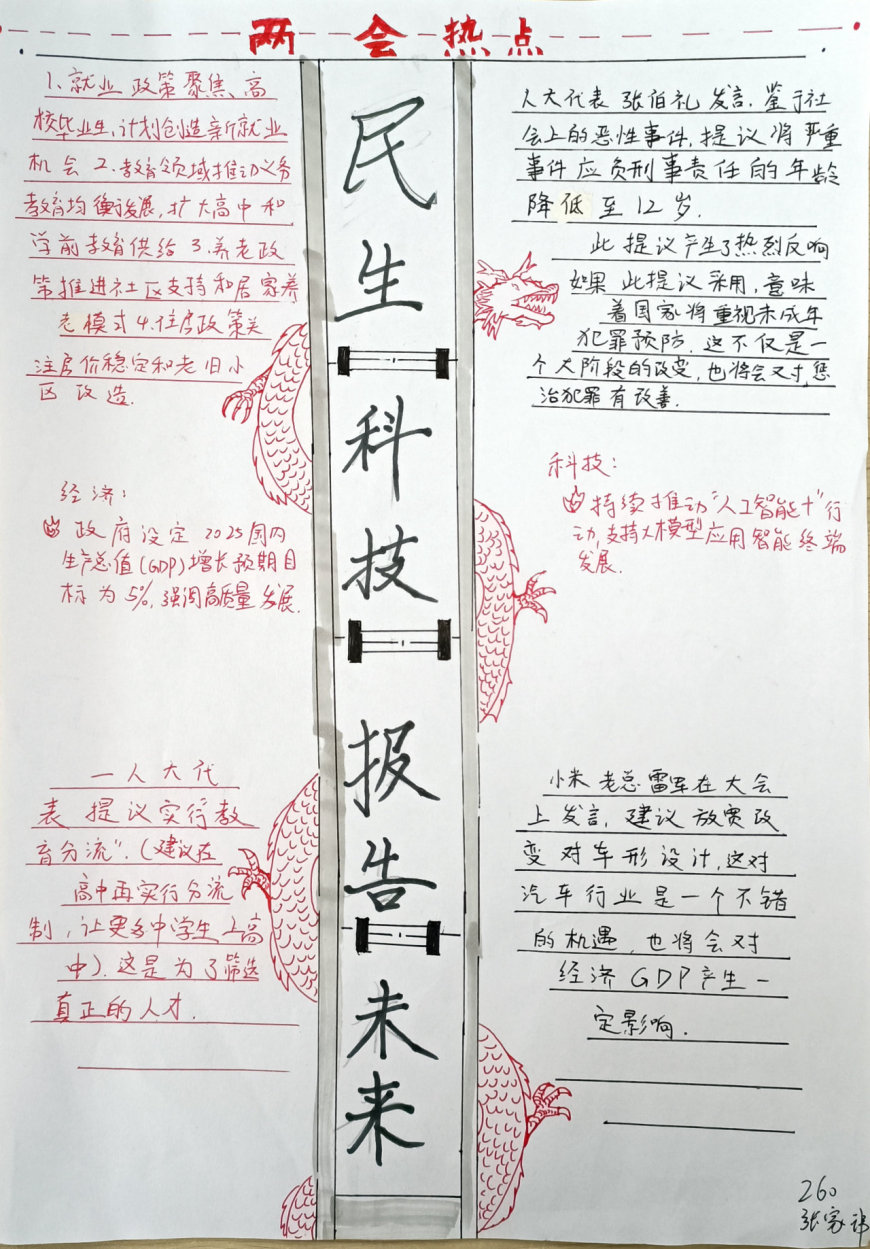 两会热点
1、就业政策聚焦、高
校毕业生、计划创造新就业
机会 2、教育领域推动义务
教育均衡发展,扩大高中和
学前教育供给 3.养老政
策推进社区支持和居家养
老模式 4.住房政策关
注房价稳定和老旧小
区改造.
经济:
政府设定2025国内
生产总值(GDP)增长预期目
标为5%,强调高质量发展.
一人大代
表提议实行教
育分流".(建议在
高中再实行分流
制,让更多中学生上高
中).这是为了筛选
真正的人才.
民生
科技
报告
未来
人大代表张伯礼发言.鉴于社
会上的恶性事件,提议将严重
事件应负刑事责任的年龄
降低至12岁.
此提议产生了热烈反响
如果此提议采用,意味
着国家将重视未成年
犯罪预防.这不仅是一
个大阶段的改变,也将会对惩
治犯罪有改善.
科技:
持续推动"人工智能+"行
动,支持大模型应用智能终端
发展.
小米老总雷军在大会
上发言,建议放宽改
变对车形设计,这对
汽车行业是一个不错
的机遇,也将会对
经济GDP产生一
定影响.
260
张家祎